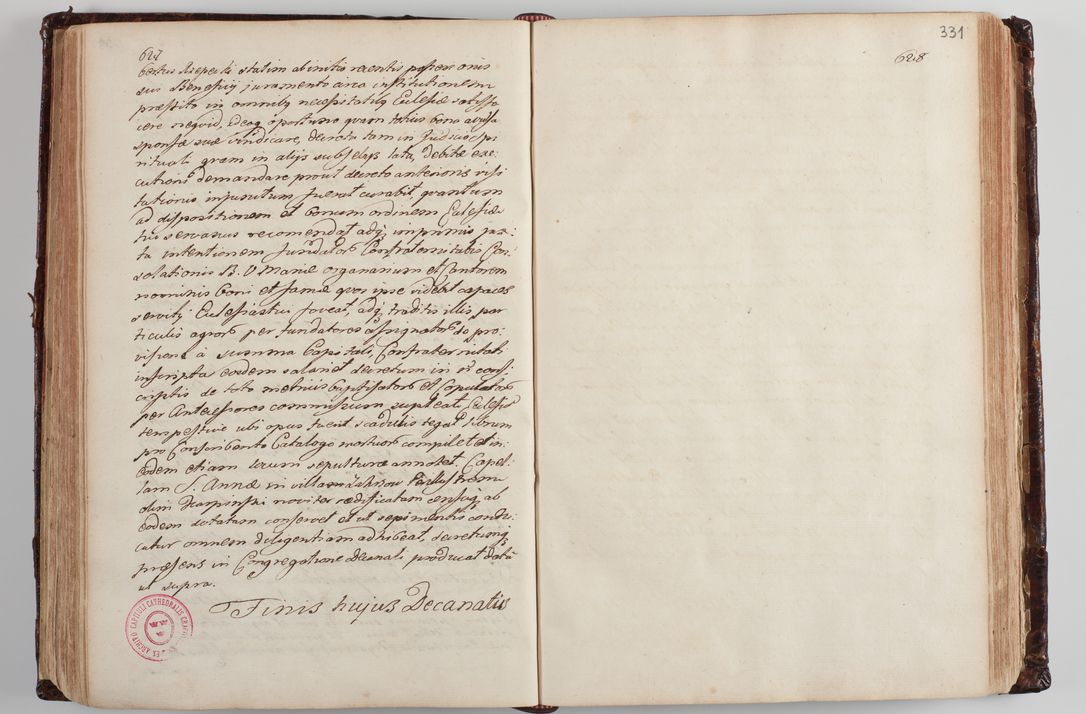 627
bertus Rzepecki statim ab initio recentis possessionis
sui Beneficij juramento circa institutionem
præstito in omnibq necessitatibq Ecclesiæ satisfa
cere nequid, ideoq oportuno quam tutius bona avulsa
sponsæ suæ vindicare, decreta tam in Judicio Spi
rituali quam in alijs subsellijs lata, debitæ exe:
cutioni demandare prout decreto anterioris visi
tationis injunctum fuerat curabit, quantum
ad dispositionem et bonum ordinem Ecclesiæ
hujus servandus recomendat adq; imprimis jux:
ta intentionem fundator Confraternitatis Con:
solationis B. V. Mariæ organarium et Cantorem
nominis boni et famæ quos ipse videbit capaces
servitij Ecclesiastici foveat, adq traditis illis par
ticulis agror per fundatores assignator do pro:
visione a summa Capitali Confraternitati
inscripta eosdem salariet decretum in
scriptis de toto metrices baptisator et Copulator
per Antecessores commissum supleat, Ecclesiæ
tempestive ubi opus fuerit scandulis tegat librum
pro Conscribendo Catalogo mortuor compilet et in
eodem etiam locum sepulturæ annotet. Capel:
lam S. Annæ in villam Zakrzow Perillustrem
olim Karpinski noviter ædificatam censuq; ab
eodem dotatam conservet et ut sepimentis condu:
catur omnem diligentiam adhibeat, decretumq;
præsens in Congregatione Decanali producat Datu
ut supra.
Finis hujus Decanatus
EX ARCHIVO CAPITULI CATHEDRALIS
331
628